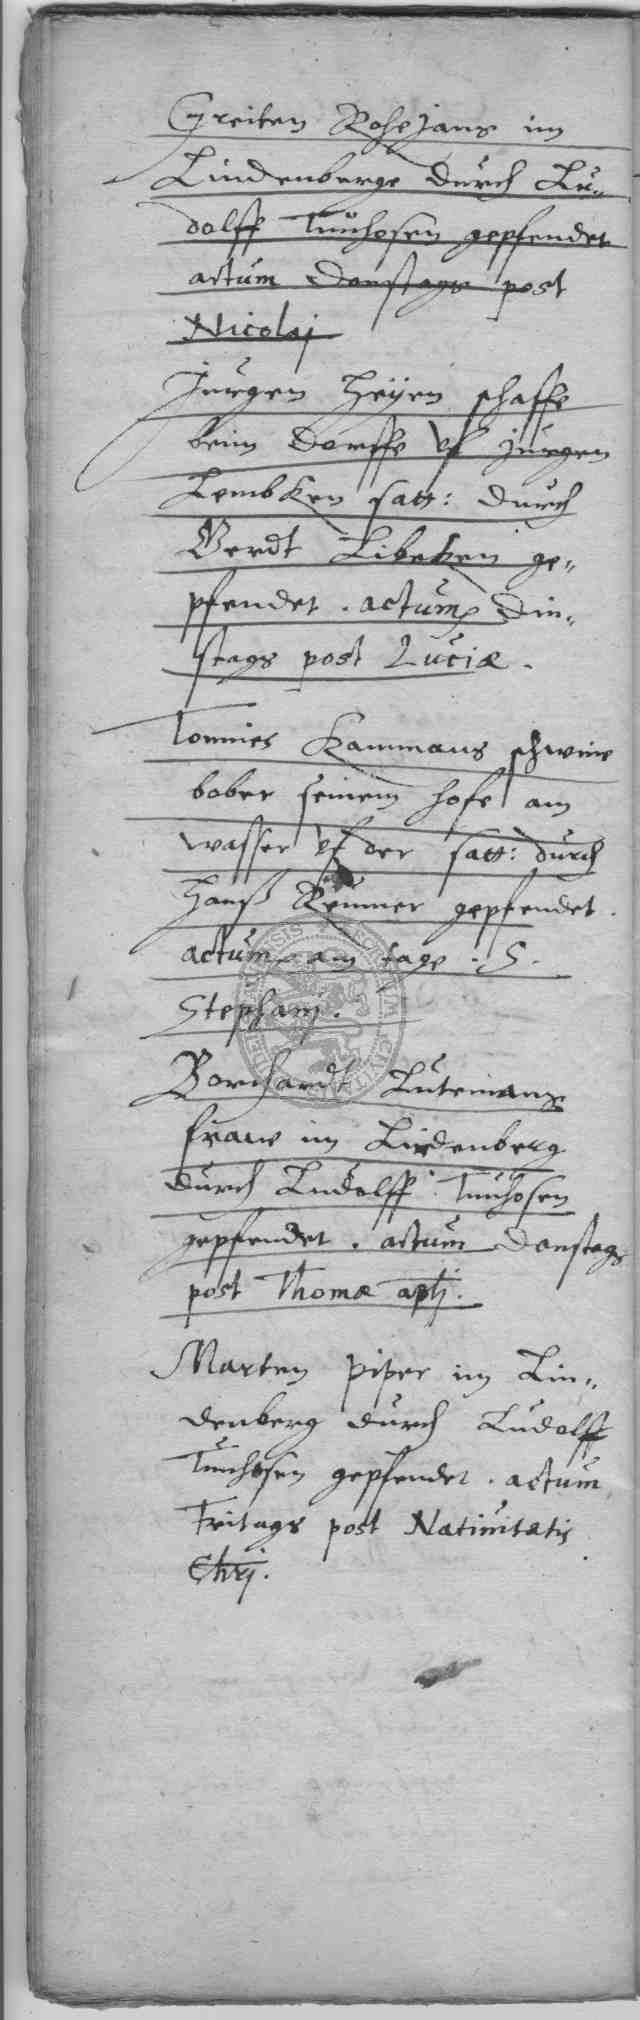 Greiten Rosejans im
Lindenberge durch Lu„
dolff Tunhosen gepfendet
actum Donstags post
Nicolaj
Jurgen Heyen schaffe
beim Dorffe vf Jurgen
Lembken satt: durch
Berdt Libeken ge„
pfendet. actum Din„
stags post Luciæ.
Tonnies Kammans schwine
bober seinem hofe am
wasser vf der satt: durch
Hanß Reumer gepfendet.
actum am tage S.
Stephanj.
Borchardt Lutemans
fraw im Lindenberg
durch Ludolff Tunhosen
gepfendet. actum Donstags
post Thomæ aptj.
Marten Piper im Lin„
denberg durch Ludolff
Tunhosen gepfendet. actum
Freitags post Natiuitatis
Chrj.